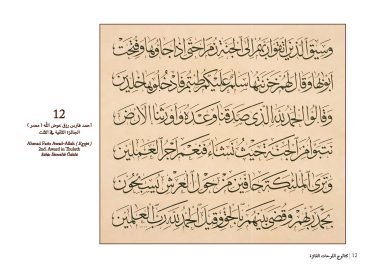 وَسِيقَ الَّذِينَ اتَّقَوْا رَبَّهُمْ إِلَى الْجَنَّةِ زُمَرًا حَتَّى إِذَا جَاءُوهَا وَفُتِحَتْ
أَبْوَابُهَا وَقَالَ لَهُمْ خَزَنَتُهَا سَلَامٌ عَلَيْكُمْ طِبْتُمْ فَادْخُلُوهَا خَالِدِينَ
وَقَالُوا الْحَمْدُ لِلَّهِ الَّذِي صَدَقَنَا وَعْدَهُ وَأَوْرَثَنَا الْأَرْضَ
نَتَبَوَّأُ مِنَ الْجَنَّةِ حَيْثُ نَشَاءُ فَنِعْمَ أَجْرُ الْعَامِلِينَ
وَتَرَى الْمَلَائِكَةَ حَافِّينَ مِنْ حَوْلِ الْعَرْشِ يُسَبِّحُونَ
بِحَمْدِ رَبِّهِمْ وَقُضِيَ بَيْنَهُمْ بِالْحَقِّ وَقِيلَ الْحَمْدُ لِلَّهِ رَبِّ الْعَالَمِينَ
12
أحمد فارس رزق عوض الله ( مصر )
الجائزة الثانية في الثلث
Ahmad Faris Awad-Allah ( Egypt )
2nd. Award in Thuluth
12 | كتالوج اللوحات الفائزة